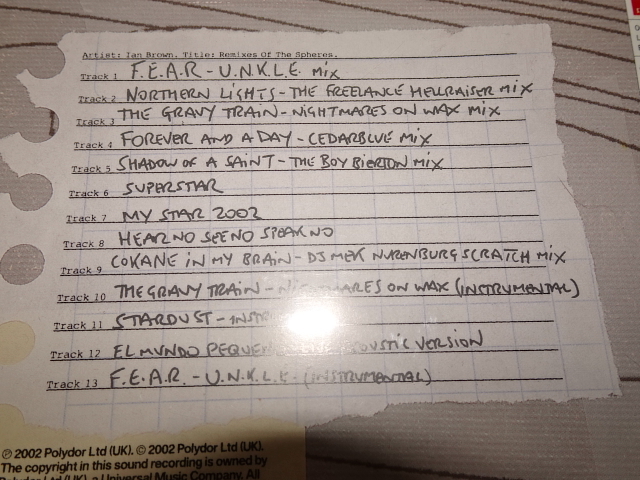 Artist: Ian Brown. Title: Remixes Of The Spheres.
Track 1 F.E.A.R - U.N.K.L.E. MiX
Track 2 NORTHERN LIGHTS - THE FREELANCE HELLRAISER MiX
Track 3 THE GRAVY TRAIN - NIGHTMARES ON WAX MiX
Track 4 FOREVER AND A DAY - CEDARBLUE MiX
Track 5 SHADOW OF A SAINT - THE BOY BiERTON MiX
Track 6 SUPERSTAR
Track 7 MY STAR 2002
Track 8 HEAR NO SEE NO SPEAK NO
Track 9 COKANE iN MY BRAiN - DJ MEK NURENBURG SCRATCH MiX
Track 10 THE GRAVY TRAIN - NIGHTMARES ON WAX (INSTRUMENTAL)
Track 11 STARDUST -
Track 12 EL MUNDO VERSION
Track 13 F.E.A.R. - U.N.K.L.E. (INSTRUMENTAL)
℗ 2002 Polydor Ltd (UK). © 2002 Polydor Ltd (UK).
The copyright in this sound recording is owned by
Polydor Ltd (UK), a Universal Music Company. All